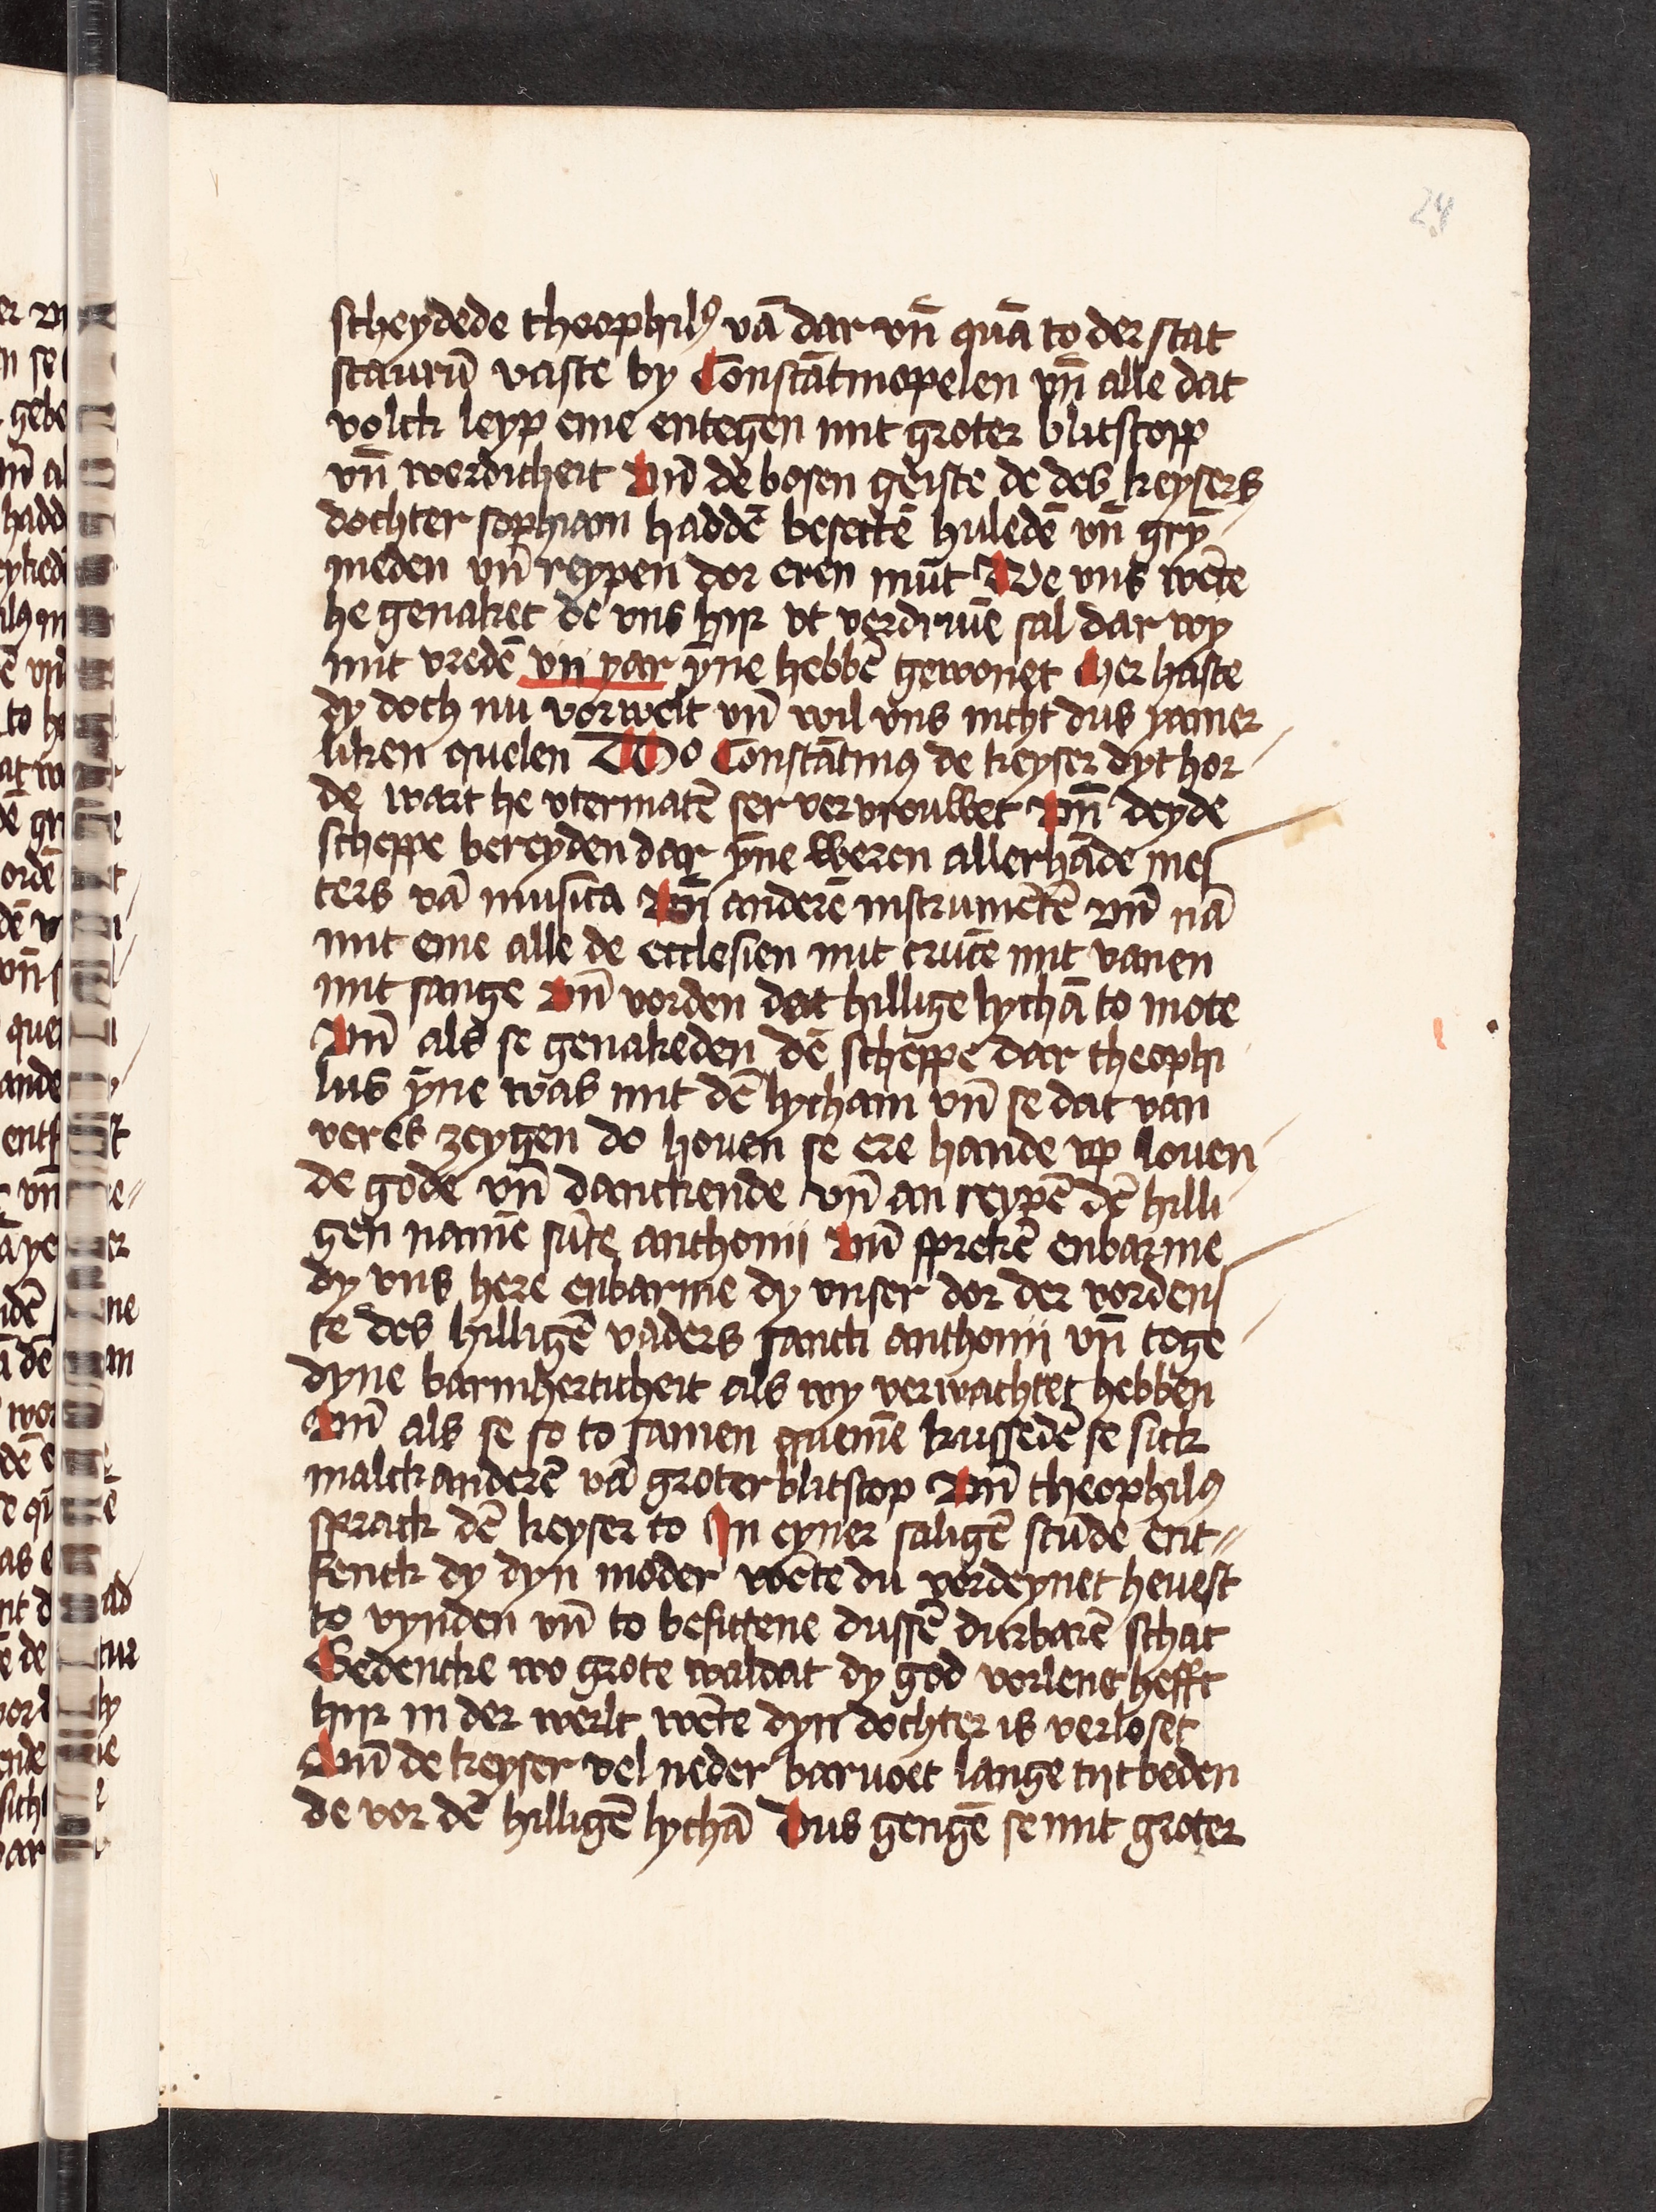 24
scheydede theophilꝰ vā dar vn̄ quā to der stat
staurū vaste by Constātinopelen vn̄ alle dat
volck leyp eme entegen mit groter blitscopp
vn̄ werdicheit Vn̄ de bosen geiste de des keysers
dochter sophiam haddē besettē huledē vn̄ gry
meden vn̄ reypen dor eren mūt We vns wēte
he genaket de vns hijr vt verdriuē sal dar wy
mit vredē vii yar ynne hebbē gewonet her haste
dy doch nu vorwelt vn̄ wil vns nicht dus yamer
liken quelen Do Constātinꝰ de keyser dyt hor
de wart he vtermatē ser vervrouwet Vn̄ deyde
scheppe bereyden dar yne weren allerhāde mes
ters vā musica Vn̄ anderē instrumētē Vn̄ nā
mit eme alle de ecclesien mit crucē mit vanen
mit sange Vn̄ vorden dat hillige lychā to mote
Vn̄ als se genakeden dē scheppe dar theophi
lus yne was mit dē lycham vn̄ se dat van
veres zeygen do houen se ere hande vp louen
de gode vn̄ danckende vn̄ an reypē dē hilli
gen namē sūte anthonii Vn̄ sprekē enbarme
dy vns here enbarme dy vnser dor der vordens
te des hilligē vaders sancti anthonii vn̄ toge
dyne barmherticheit als wy verwachtet hebben
Vn̄ als se so to samen quemē kussedē se sick
malck anderē vā groter blitscop Vn̄ theophilꝰ
sprack dē keyser to In eyner saligē stūde ent
fenck dy dyn moder wēte du vordeynet heuest
to vynden vn̄ to besittene dussē durbarē schat
Gedencke wo grote waldat dy god vorlenet hefft
hijr in der werlt wēte dyn dochter is verloset
Vn̄ de keyser vel neder baruoet lange tijt beden
de vor dē hilligē lychā Dus gengē se mit groter